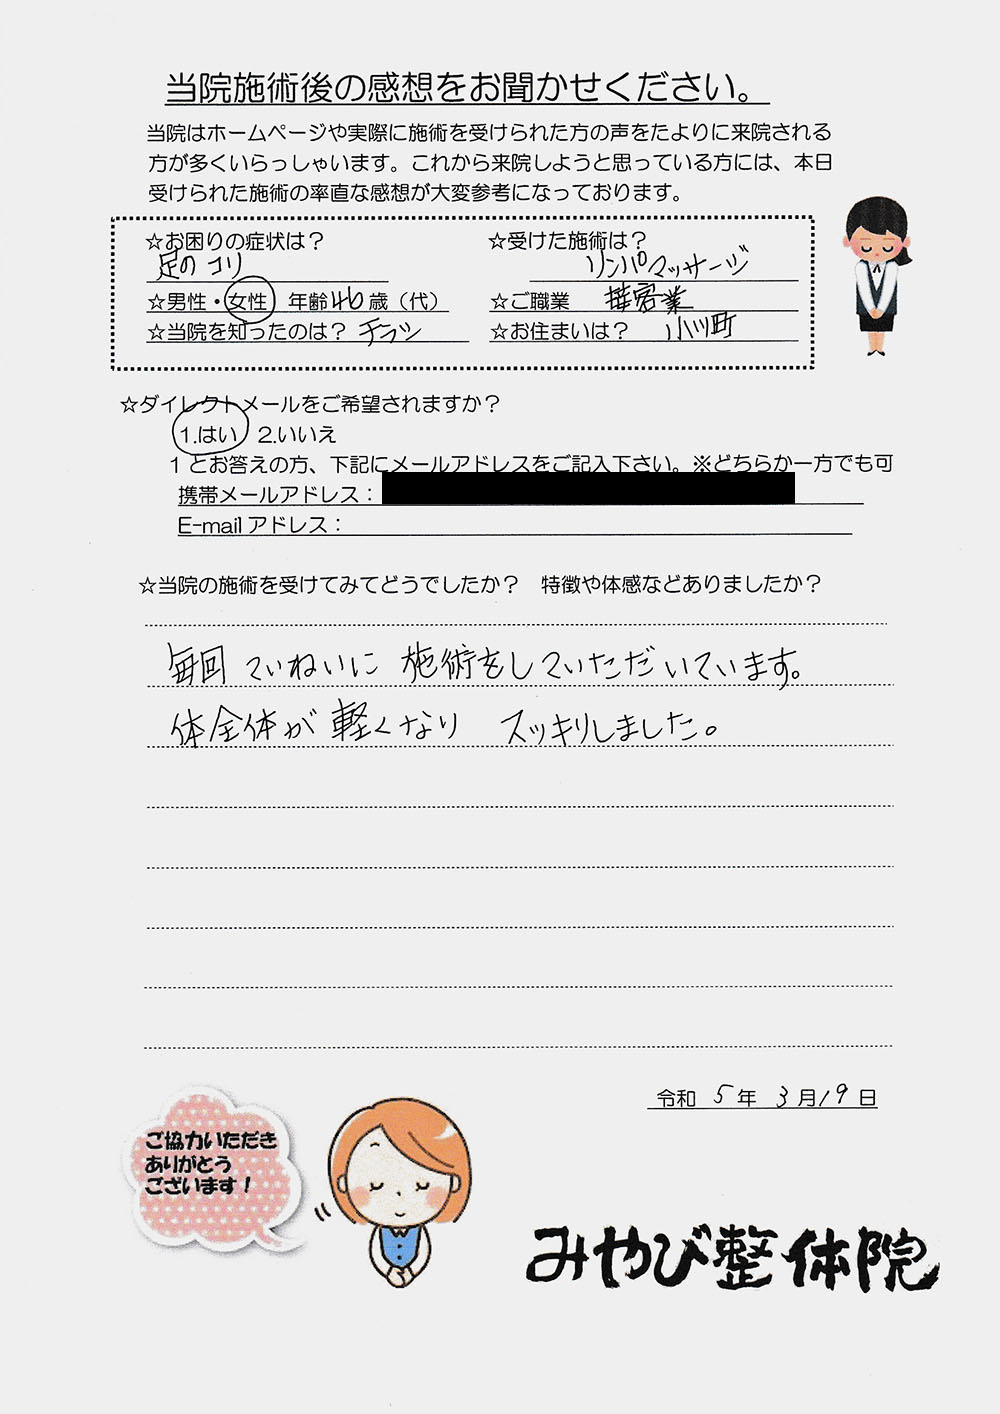 当院施術後の感想をお聞かせください。
当院はホームページや実際に施術を受けられた方の声をたよりに来院される
方が多くいらっしゃいます。これから来院しようと思っている方には、本日
受けられた施術の率直な感想が大変参考になっております。
☆お困りの症状は？ ☆受けた施術は？
足のコリ リンパマッサージ
☆男性・女性 年齢46歳（代） ☆ご職業 接客業
☆当院を知ったのは？ チラシ ☆お住まいは？ 小川町
☆ダイレクトメールをご希望されますか？
1.はい 2.いいえ
1とお答えの方、下記にメールアドレスをご記入下さい。※どちらか一方でも可
携帯メールアドレス：
E-mailアドレス：
☆当院の施術を受けてみてどうでしたか？ 特徴や体感などありましたか？
毎回ていねいに施術をしていただいています。
体全体が軽くなり スッキリしました。
令和5年3月19日
ご協力いただき
ありがとう
ございます！
みやび整体院